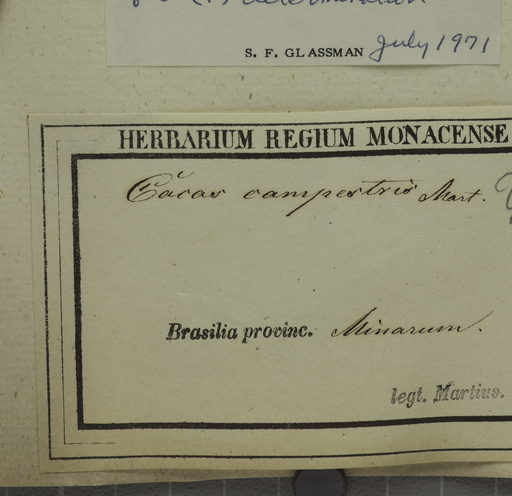 S. F. GLASSMAN July 1971
HERBARIUM REGIUM MONACENSE
Cocos campestris Mart.
Brasilia provinc. Minarum.
legt. Martius.